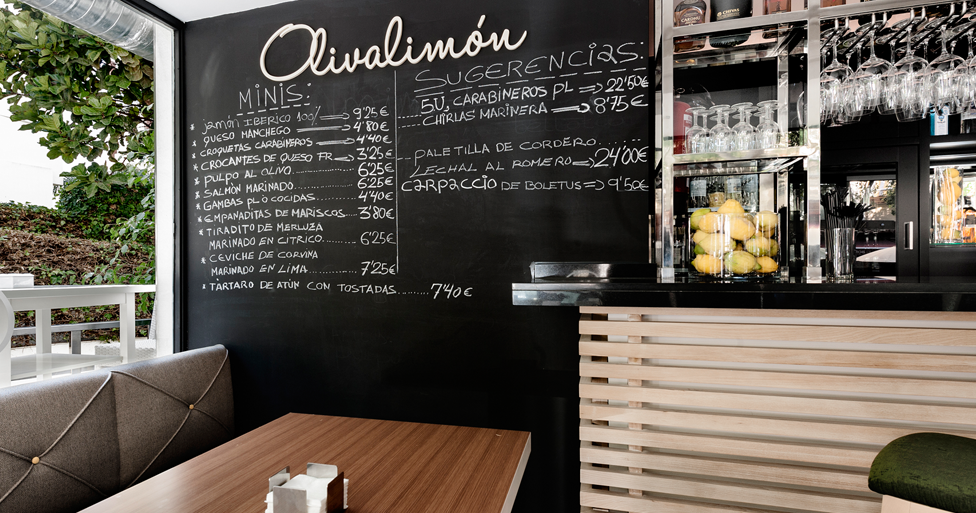 Olivalimón
MINIS:
* JAMÓN IBERICO 100% ⟹ 9'25€
* QUESO MANCHEGO ⟹ 4'80€
* CROQUETAS CARABINEROS ⟹ 4'40€
* CROCANTES DE QUESO FR ⟹ 3'25€
* PULPO AL OLIVO 6'25€
* SALMÓN MARINADO 6'25€
* GAMBAS PL Ó COCIDAS 4'40€
* EMPANADITAS DE MARISCOS.... 3'80€
* TIRADITO DE MERLUZA
MARINADO EN CITRICO........ 6'25€
* CEVICHE DE CORVINA
MARINADO EN LIMA........... 7'25€
* TÁRTARO DE ATÚN CON TOSTADAS.......... 7'40€
SUGERENCIAS:
5U. CARABINEROS PL ⟹ 22'50€
CHIRLAS MARINERA ⟹ 8'75€
PALETILLA DE CORDERO......
LECHAL AL ROMERO ⟹ 24'00€
CARPACCIO DE BOLETUS ⟹ 9'50€